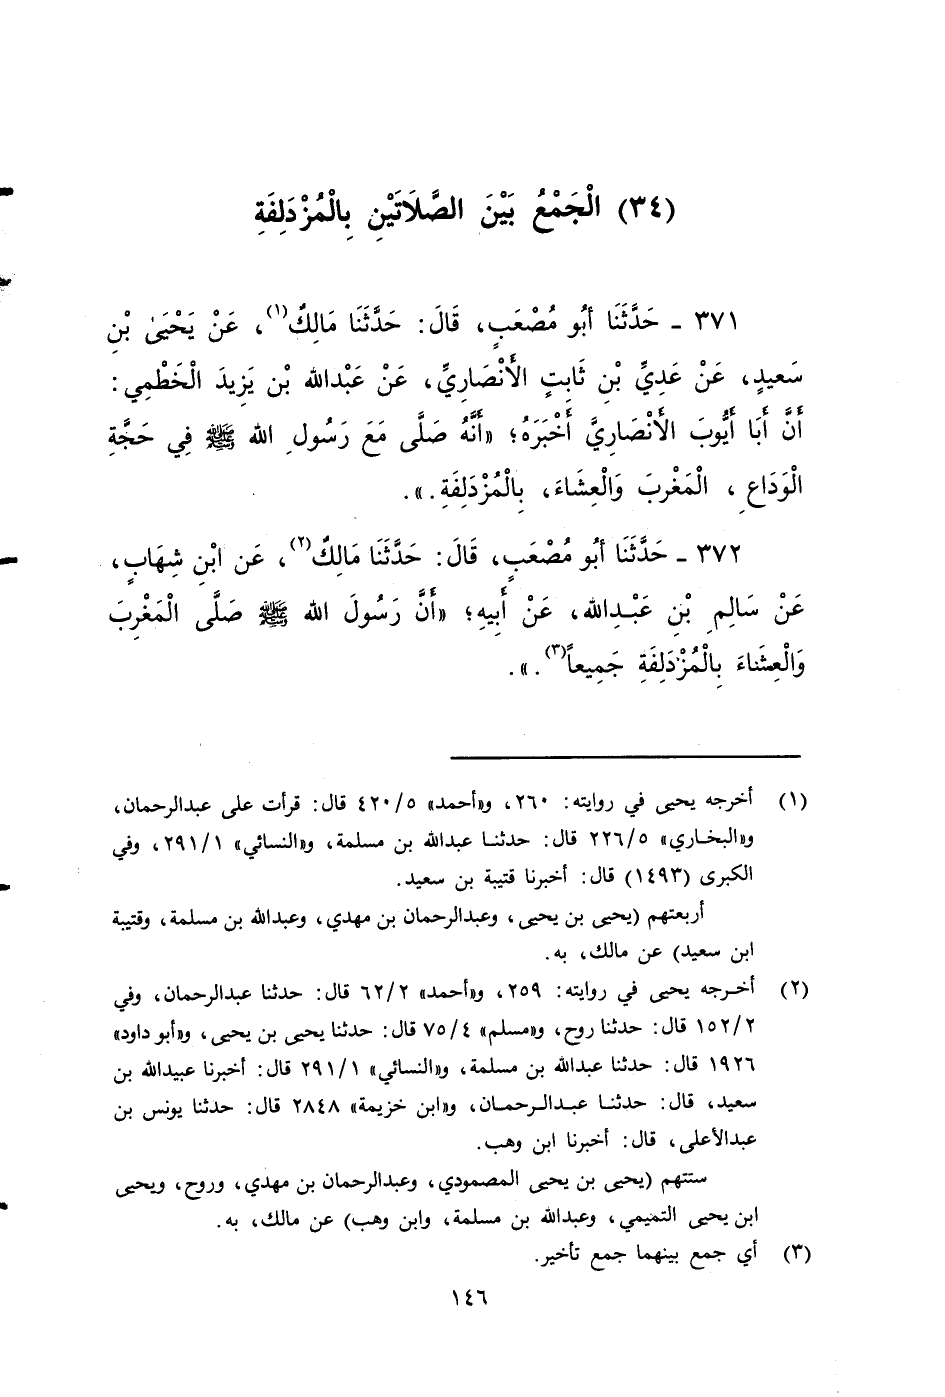 (٣٤) الْجَمْعُ بَيْنَ الصَّلَاتَيْنِ بِالْمُزْدَلِفَةِ
٣٧١ ـ حَدَّثَنَا أَبُو مُصْعَبٍ، قَالَ: حَدَّثَنَا مَالِكٌ(١)، عَنْ يَحْيَىٰ بْنِ
سَعيدٍ، عَنْ عَدِيِّ بْنِ ثَابِتٍ الأَنْصَارِيِّ، عَنْ عَبْدالله بْن يَزِيدَ الْخَطْمِي:
أَنَّ أَبَا أَيُّوبَ الأَنْصَارِيَّ أَخْبَرَهُ؛ «أَنَّهُ صَلَّى مَعَ رَسُولِ الله ﷺ فِي حَجَّةِ
الْوَدَاعِ، الْمَغْرِبَ وَالْعِشَاءَ، بِالْمُزْدَلِفَةِ.».
٣٧٢ ـ حَدَّثَنَا أَبُو مُصْعَبٍ، قَالَ: حَدَّثَنَا مَالِكٌ(٢)، عَن ابْنِ شِهَابٍ،
عَنْ سَالِمِ بْنِ عَبْدِالله، عَنْ أَبِيهِ؛ «أَنَّ رَسُولَ الله ﷺ صَلَّى الْمَغْرِبَ
وَالْعِشَاءَ بِالْمُزْدَلِفَةِ جَمِيعاً(٣).».
(١) أخرجه يحيى في روايته: ٢٦٠، و«أحمد» ٤٢٠/٥ قال: قرأت على عبدالرحمان،
و«البخاري» ٢٢٦/٥ قال: حدثنا عبدالله بن مسلمة، و«النسائي» ٢٩١/١، وفي
الكبرى (١٤٩٣) قال: أخبرنا قتيبة بن سعيد.
أربعتهم (يحيى بن يحيى، وعبدالرحمان بن مهدي، وعبدالله بن مسلمة، وقتيبة
ابن سعيد) عن مالك، به.
(٢) أخرجه يحيى في روايته: ٢٥٩، و«أحمد» ٦٢/٢ قال: حدثنا عبدالرحمان، وفي
١٥٢/٢ قال: حدثنا روح، و«مسلم» ٧٥/٤ قال: حدثنا يحيى بن يحيى، و«أبو داود»
١٩٢٦ قال: حدثنا عبدالله بن مسلمة، و«النسائي» ٢٩١/١ قال: أخبرنا عبيدالله بن
سعيد، قال: حدثنا عبدالرحمان، و«ابن خزيمة» ٢٨٤٨ قال: حدثنا يونس بن
عبدالأعلى، قال: أخبرنا ابن وهب.
ستتهم (يحيى بن يحيى المصمودي، وعبدالرحمان بن مهدي، وروح، ويحيى
ابن يحيى التميمي، وعبدالله بن مسلمة، وابن وهب) عن مالك، به.
(٣) أي جمع بينهما جمع تأخير.
١٤٦